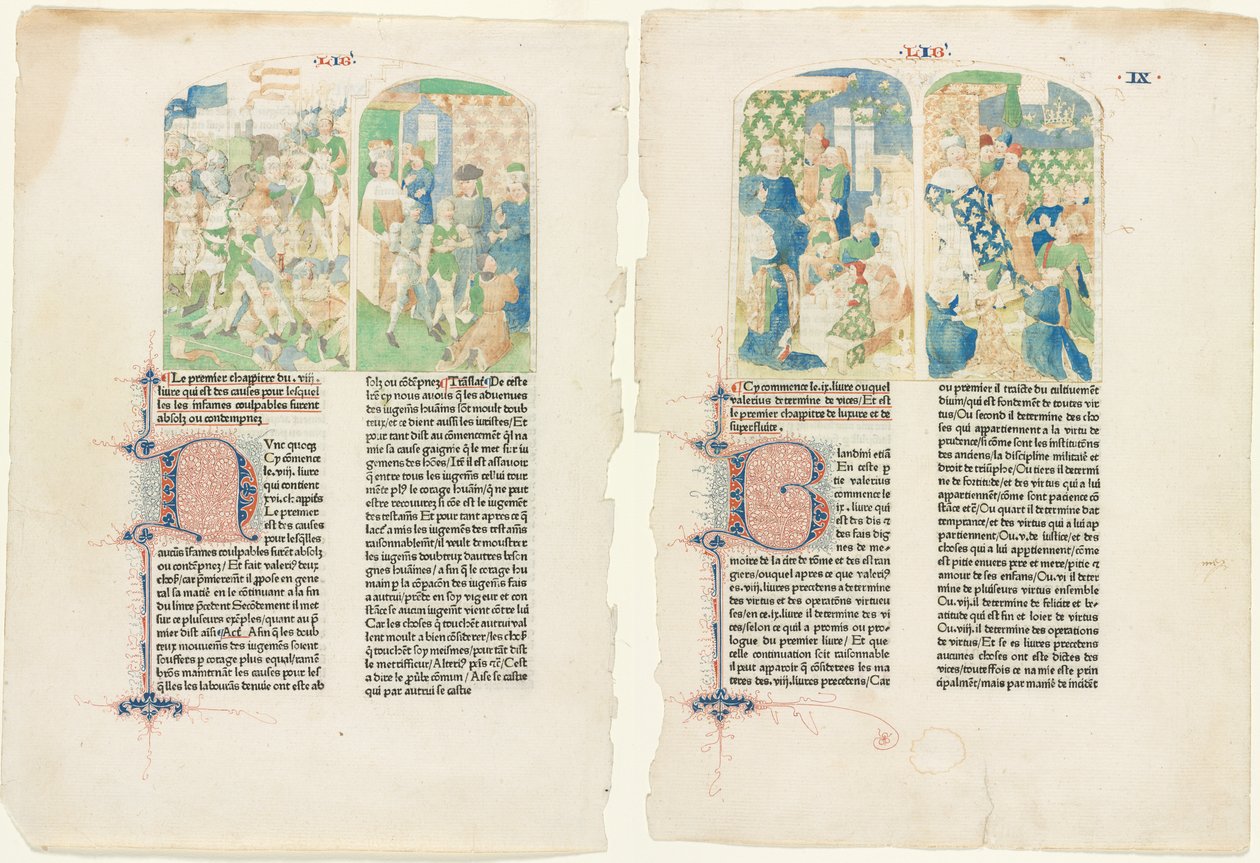 ·LIB'·
¶Le premier chappitre du .viij.
liure qui est des causes pour lesquel
les les infames coulpables furent
absolz ou contempnez
Vnc quoq3
Cy cõmence
le .viij. liure
qui contient
xvi. chappits
Le premier
est des causes
pour lesq̃lles
aucũs ĩfames coulpables furẽt absolz
ou condẽpnez/ Et fait valeri9 deux
chos̃/car p̃mieremẽt il ꝓpose en gene
ral sa matiẽ en le cõtinuant a la fin
du liure p̃cedent Secõdement il met
sur ce pluseurs exẽples/quant au p̃
mier dist aĩsi ¶Act̃ Afin q̃ les doub
teux mouuemẽs des iugemẽs soient
souffers ꝑ corage plus equal/ramẽ
brõs maintenãt les causes pour les
q̃lles les labourãs denuie ont este ab
solz ou cõdẽpnez ¶Trãslat̃ ¶De ceste
lr̃e cy nous auõs q̃ les aduenues
des iugem̃s huaĩns sõt moult doub
teux/et ce dient aussi les iuristes/Et
pour tant dist au cõmencement q̃l na
mie sa cause gaignie q̃ le met sur iu
gemens des hõẽs/Itẽ il est assauoir
q̃ entre tous les iugem̃s cel'ui tour
mẽte pl9 le corage huaĩn/q̃ ne peut
estre recouurez si cõe est le iugement
des testam̃s Et pour tant apres ce q̃
lact̃ a mis les iugem̃s des testam̃s
raisonnablem̃t/il veult demoustrer
les iugem̃s doubteux dautres beson
gnes huaĩnes/a fin q̃ le corage hu
main p la cõpacõn des iugem̃s fais
a autrui/prẽde en soy vigeur et con
stãce se aucun iugemt̃ vient cõtre lui
Car les choses q̃ touchẽt autrui val
lent moult a bien cõsiderer/les chos̃
q̃ touchẽt soy meismes/pour tãt dist
le metrifficur/Alteri9 pẽis &c̃/Cest
a dire le ꝓũbe cõmun/Aise se castie
qui par autrui se castie
·LIB'·
·IX·
¶Cy commence le .ix. liure ouquel
valerius determine de vices/Et est
le premier chappitre de luxure et de
superfluite.
Blandini etiã
En ceste p
tie valerius
commence le
ix. liure qui
est des dis et
des fais dig
nes de me-
moire de la cite de rõme et des estran
giers/ouquel apres ce que valeri9
es .viij. liures precedens a determine
des virtus et des operatõns virtueu
ses/en ce .ix. liure il determine des vi
ces/selon ce quil a promis ou pro-
logue du premier liure/ Et que
celle continuation soit raisonnable
il peut apparoir q̃ cõsiderees les ma
teres des .viij. liures precedens/Car
ou premier il traicte du cultiuemẽt
diuin/qui est fondement de toutes vir
tus/Ou second il determine des cho
ses qui appartiennent a la virtu de
prudence/si cõme sont les institutõns
des anciens/la discipline militaire et
droit de triũphe/Ou tiers il determi
ne de fortitude/et des virtus qui a lui
appartiennẽt/cõme sont patience cõ
stãce etc̃/Ou quart il determine dat
temprance/et des virtus qui a lui ap
partiennent/Ou .v. de iustice/et des
choses qui a lui apptiennent/cõme
est pitie enuers pere et mere/pitie et
amour de ses enfans/Ou .vi. il deter
mine de pluseurs virtus ensemble
Ou .vij. il determine de felicite et be-
atitude qui est fin et loier de virtus
Ou .viij. il determine des operations
de virtus/Et se es liures precedens
aucunes choses ont este dictes des
vices/touteffois ce na mie este prin
cipalmẽt/mais par maniẽ de incidẽt